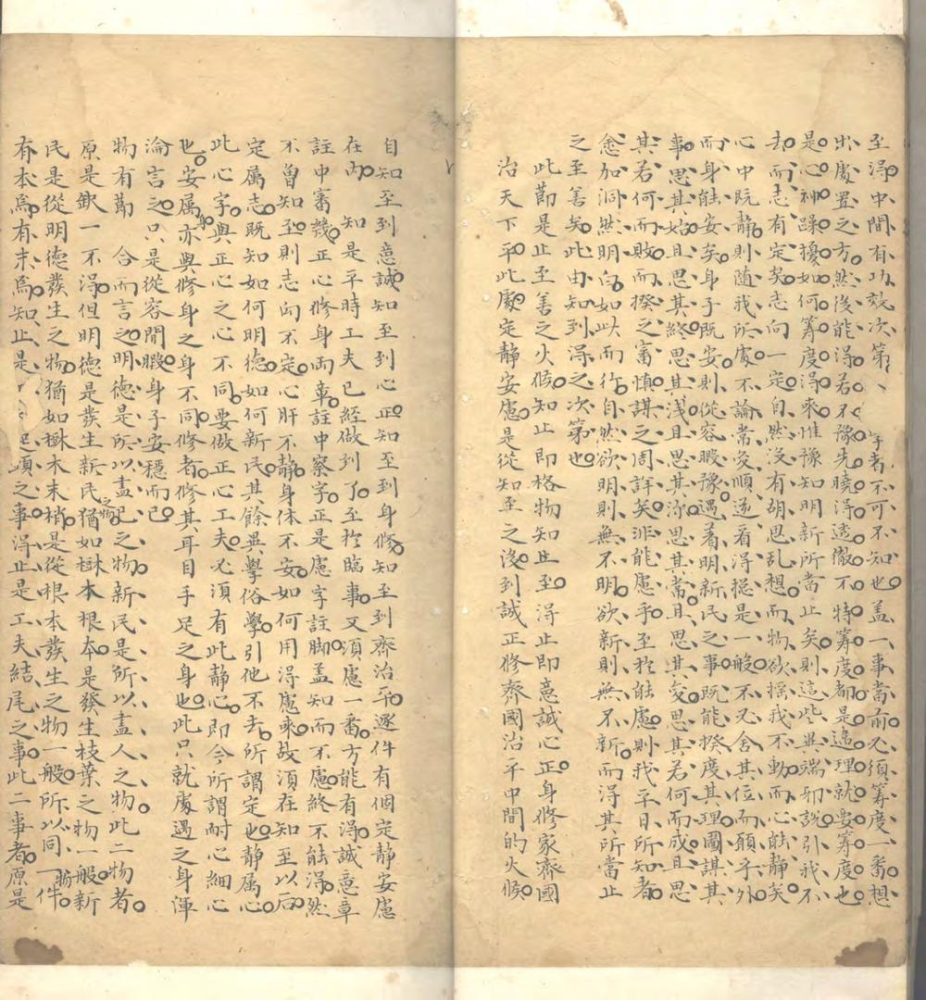 至淂中間有功效次第、 字者不可不知也盖一事當前必須筹度一番想
出處置之方然後能淂若不豫先曉淂透徹不特筹度都是違理就要筹度也
是心神躁擾如何筹度淂来惟豫知明新所當止矣則這些異端邪說引我不
去而志有定矣志向一定自然没有胡思乱想而物欲摇我不動而心能静矣
心中既静則随我所處不論常変順逆看得捴是一般不必舍其位而願乎外
而身能安矣身子既安則從容暇豫遇着明新民之事既能揆度其理圖謀其
事思其始且思其終思其浅且思其深思其常且思其変思其若何而成且思
其若何而敗而揆之審慎謀之周詳矣非能慮乎至於能慮則我平日所知者
愈加洞然明白如此而行自然欲明則無不明欲新則無不新而得其所當止
之至善矣此由知到得之次第也
此節是止至善之火候知止即格物知至得止即意誠心正身修家齊國
治天下平此處定静安慮是從知至之後到誠正修齊國治平中間的火候
自知至到意誠知至到心正知至到身修知至到齊治平逐件有個定静安慮
在內 知是平時工夫已經做到了至於臨事又須慮一番方能有得誠意章
註中審幾正心修身両章註中察字正是慮字註脚盖知而不慮終不能淂然
不曽知至則志向不定心肝不静身体不安如何用得慮来故須在知至以后
定属志既知如何明德如何新民其餘異學俗學引他不去所謂定也静属心
此心字與正心之心不同要做正心工夫必須有此静心即今所謂耐心細心
也安属身亦與修身之身不同修者修其耳目手足之身也此只就處遇之身渾
淪言之只是從容間暇身子安穩而已
物有節 合而言之明德是所以盡己之物新民是所以盡人之物此二物者
原是歉一不淂但明德是發生新民之物猶如樹本根本是發生枝葉之物一般新
民是從明德發生之物猶如樹木末梢是從根本發生之物一般所以同一件物
有本焉有末焉知止是 起頭之事淂止是工夫結尾之事此二事者原是